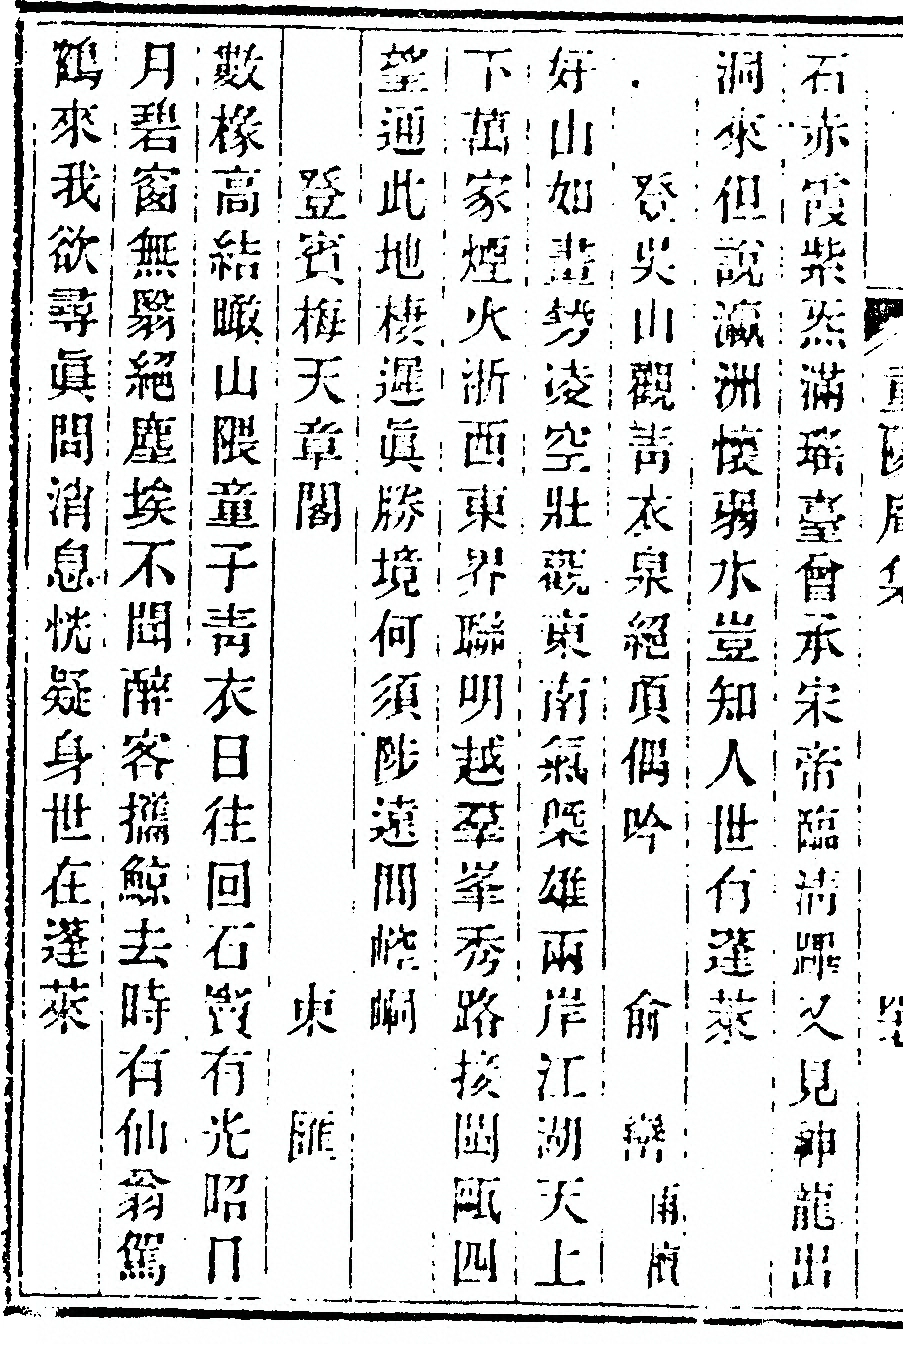 重陽庵集
石赤霞紫炁滿瑤臺曾承宋帝臨淸蹕又見神龍出
洞來但說瀛洲懷弱水豈知人世有蓬萊
登吳山觀靑衣泉絕頂偶吟 俞 巒 雨檟
好山如畫勢凌空壯觀東南氣槩雄兩岸江湖天上
下萬家煙火浙西東界聯明越羣峯秀路接閩甌四
望通此地棲遲眞勝境何須陟遠問崆峒
登賓梅天章閣 東 匯
數椽高結瞰山隈童子靑衣日往回石竇有光昭日
月碧窗無翳絕塵埃不聞醉客攜鯨去時有仙翁駕
鶴來我欲尋眞問消息恍疑身世在蓬萊